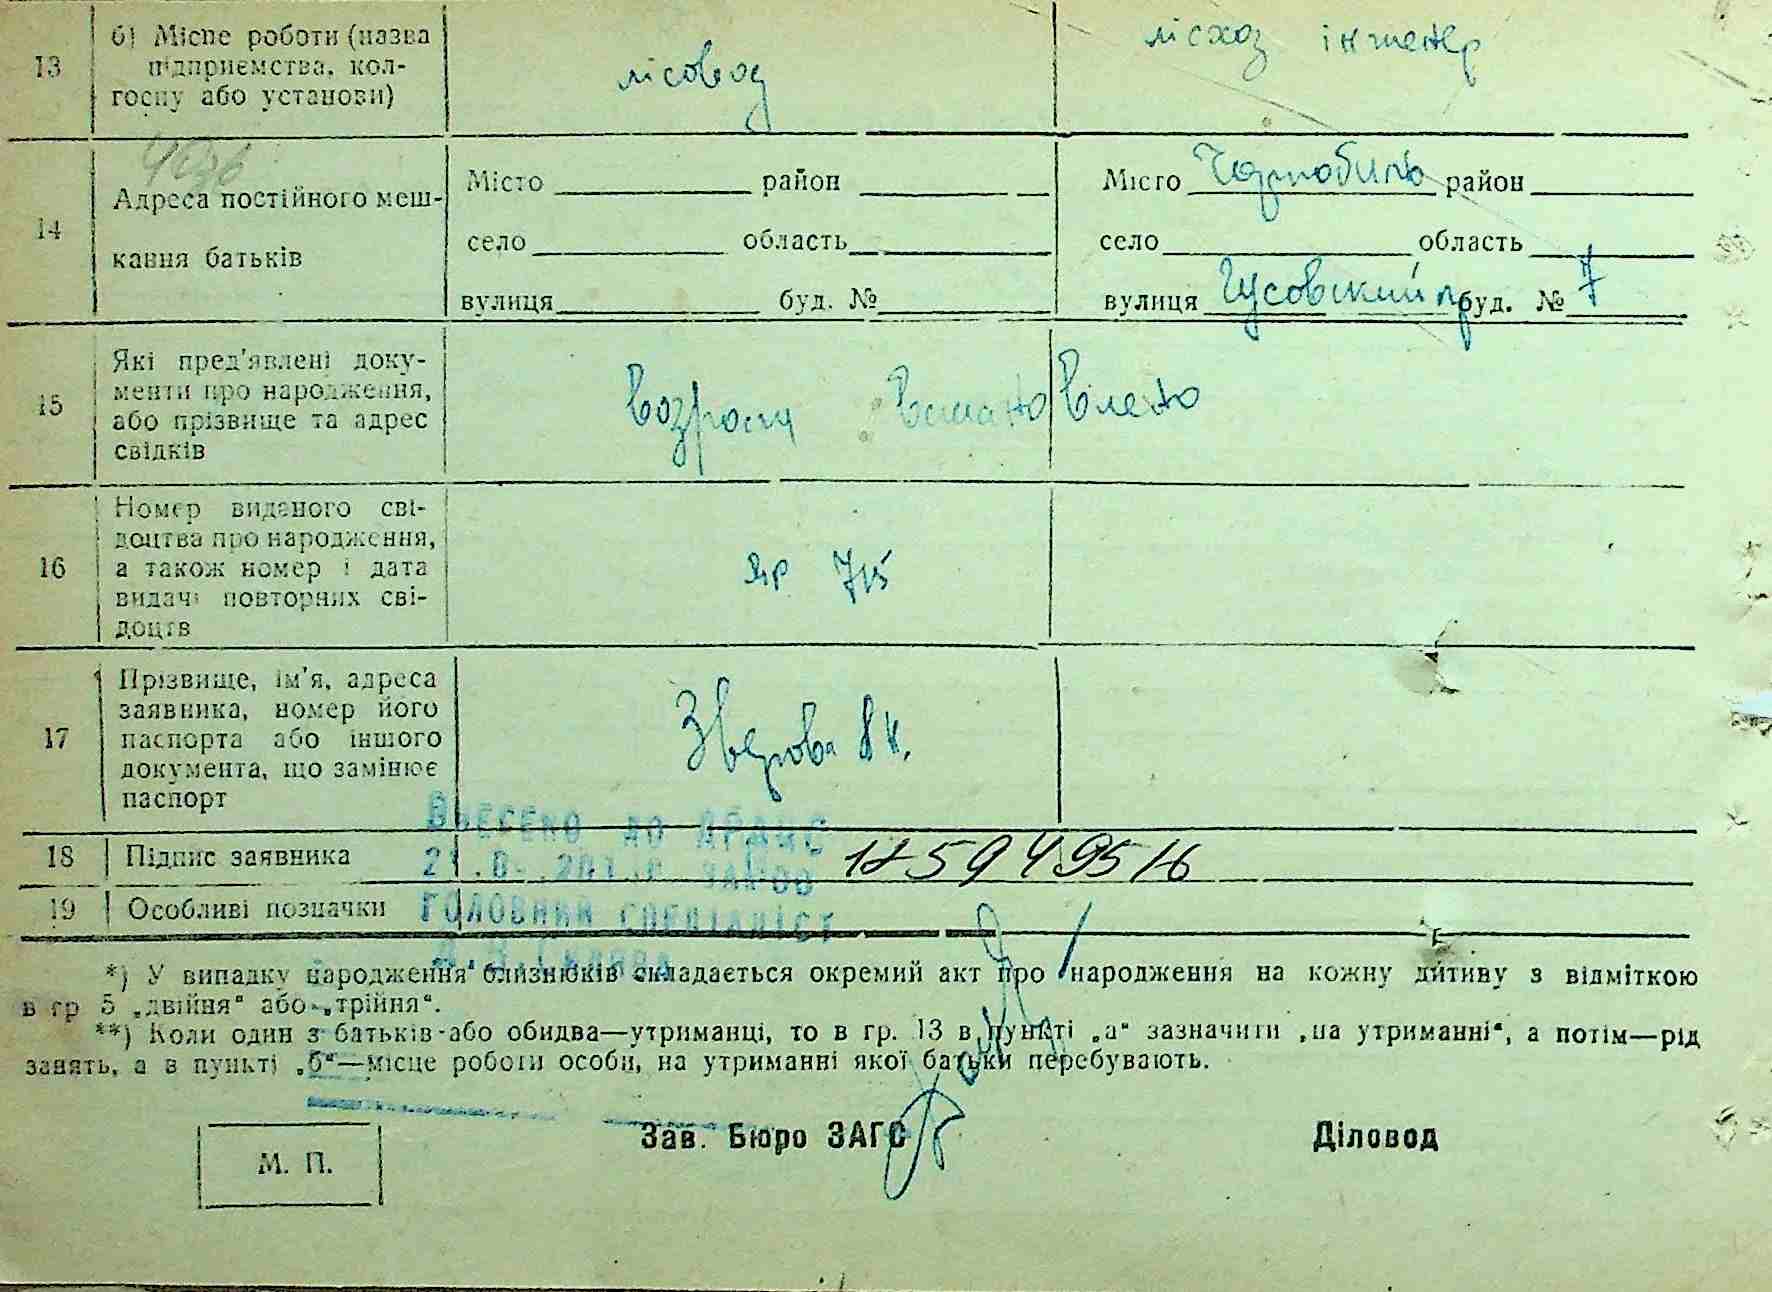 13
б) Місце роботи (назва
підприємства, кол-
госпу або установи)
лісовод
лісхоз інженер
14
Адреса постійного меш-
кання батьків
Місто район
село область
вулиця буд. №
Місто Чорнобиль район
село область
вулиця Чусовский п буд. № 7
15
Які пред'явлені доку-
менти про народження,
або прізвище та адрес
свідків
Возраст Встановлено
16
Номер виданого сві-
доцтва про народження,
а також номер і дата
видачі повторних сві-
доцтв
ЯР 715
17
Прізвище, ім'я, адреса
заявника, номер його
паспорта або іншого
документа, що замінює
паспорт
Зверова
Внесено до ДРАЦС
18 Підпис заявника
19 Особливі позначки
Головний спеціаліст
*) У випадку народження близнюків складається окремий акт про народження на кожну дитину з відміткою
в гр 5 „двійня“ або „трійня“.
**) Коли один з батьків або обидва—утриманці, то в гр. 13 в пункті „а“ зазначити „на утриманні“, а потім—рід
занять, а в пункті „б“—місце роботи особи, на утриманні якої батьки перебувають.
М. П.
Зав. Бюро ЗАГС
Діловод